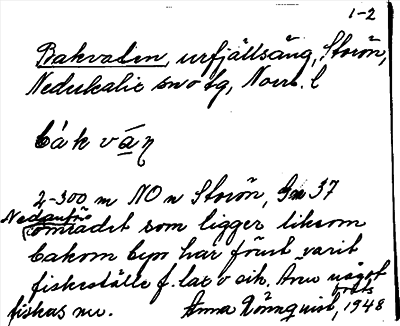 1-2
Bakvalen, urfjällsäng, Storön,
Nederkalix sn o tg, Norrb. l
bákváṇ
2-300 m NO n Storön, Gm 37
Nedanför
området som ligger liksom
bakom byn har förut varit
fiskeställe f. lax o sik. Ännu något
fiskas nu.
Anna Rönnquist, 1948